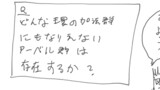 Q
どんな環の加法群
にもなりえない
アーベル群は
存在するか?